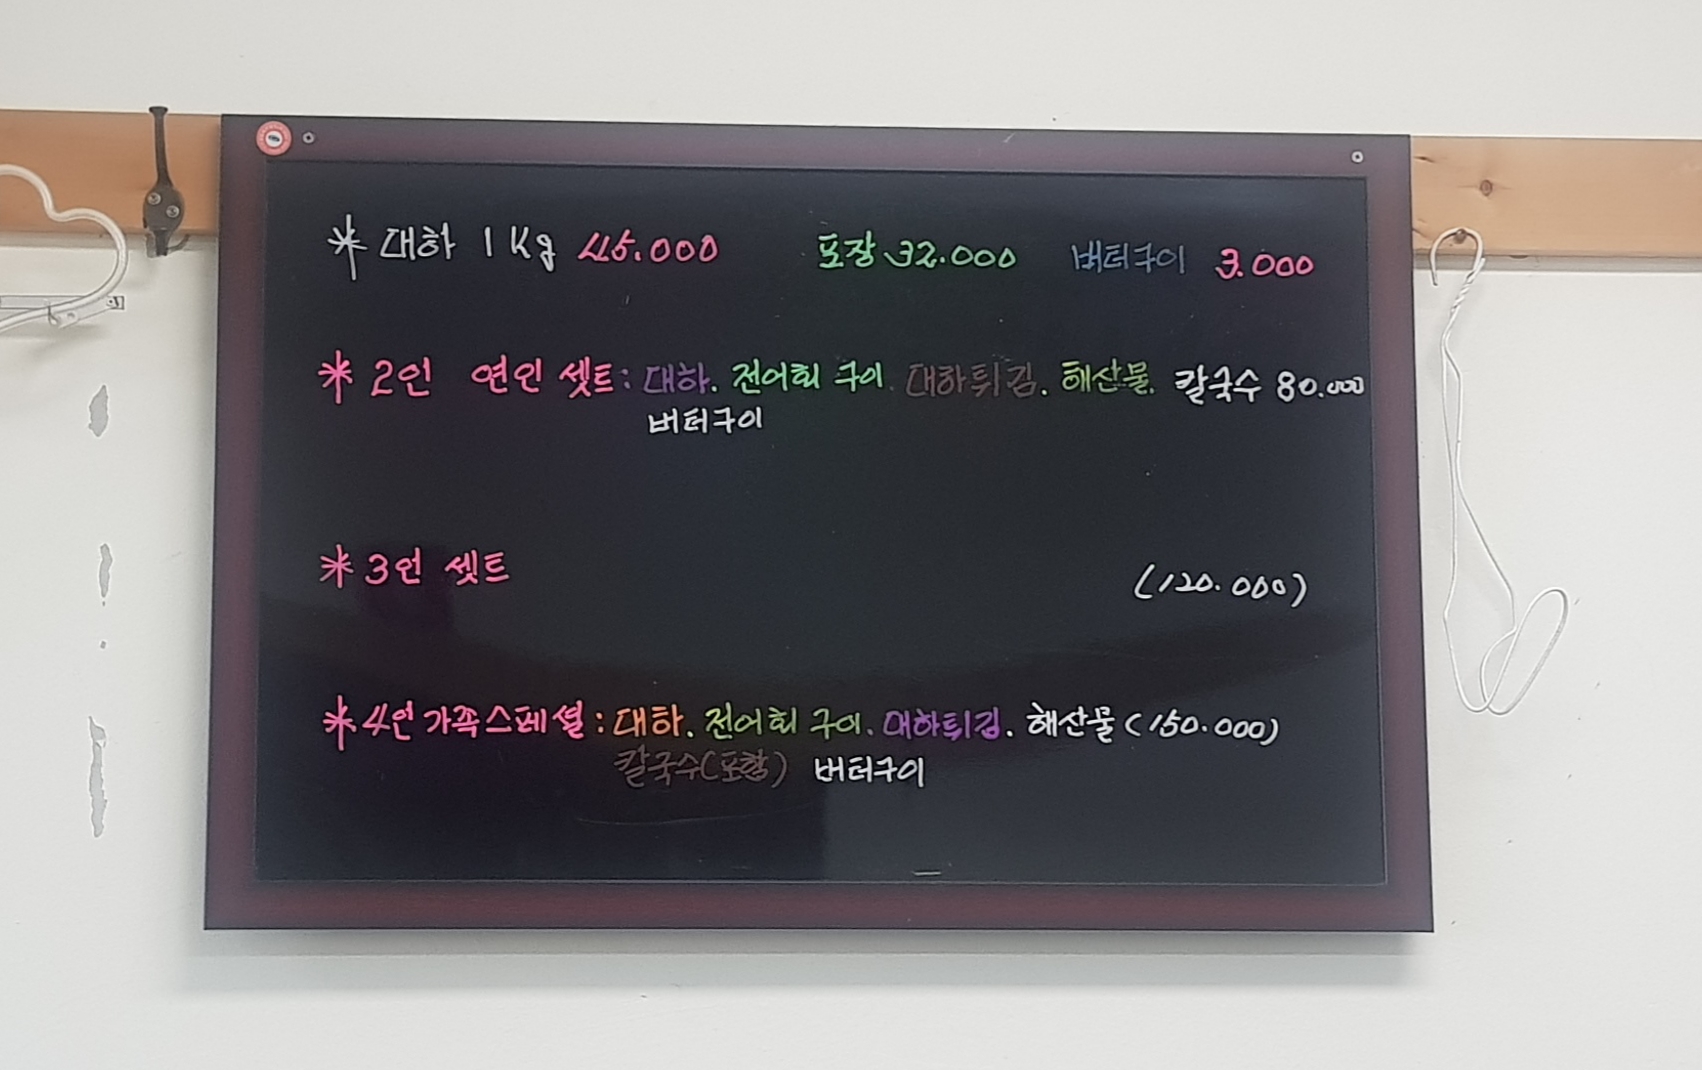 * 대하 1Kg 45.000 포장 32.000 버터구이 3.000
* 2인 연인 셋트: 대하. 전어회 구이. 대하튀김. 해산물. 칼국수 80.000
버터구이
* 3인 셋트 (120.000)
* 4인 가족스페셜: 대하. 전어회 구이. 대하튀김. 해산물 (150.000)
칼국수(포함) 버터구이